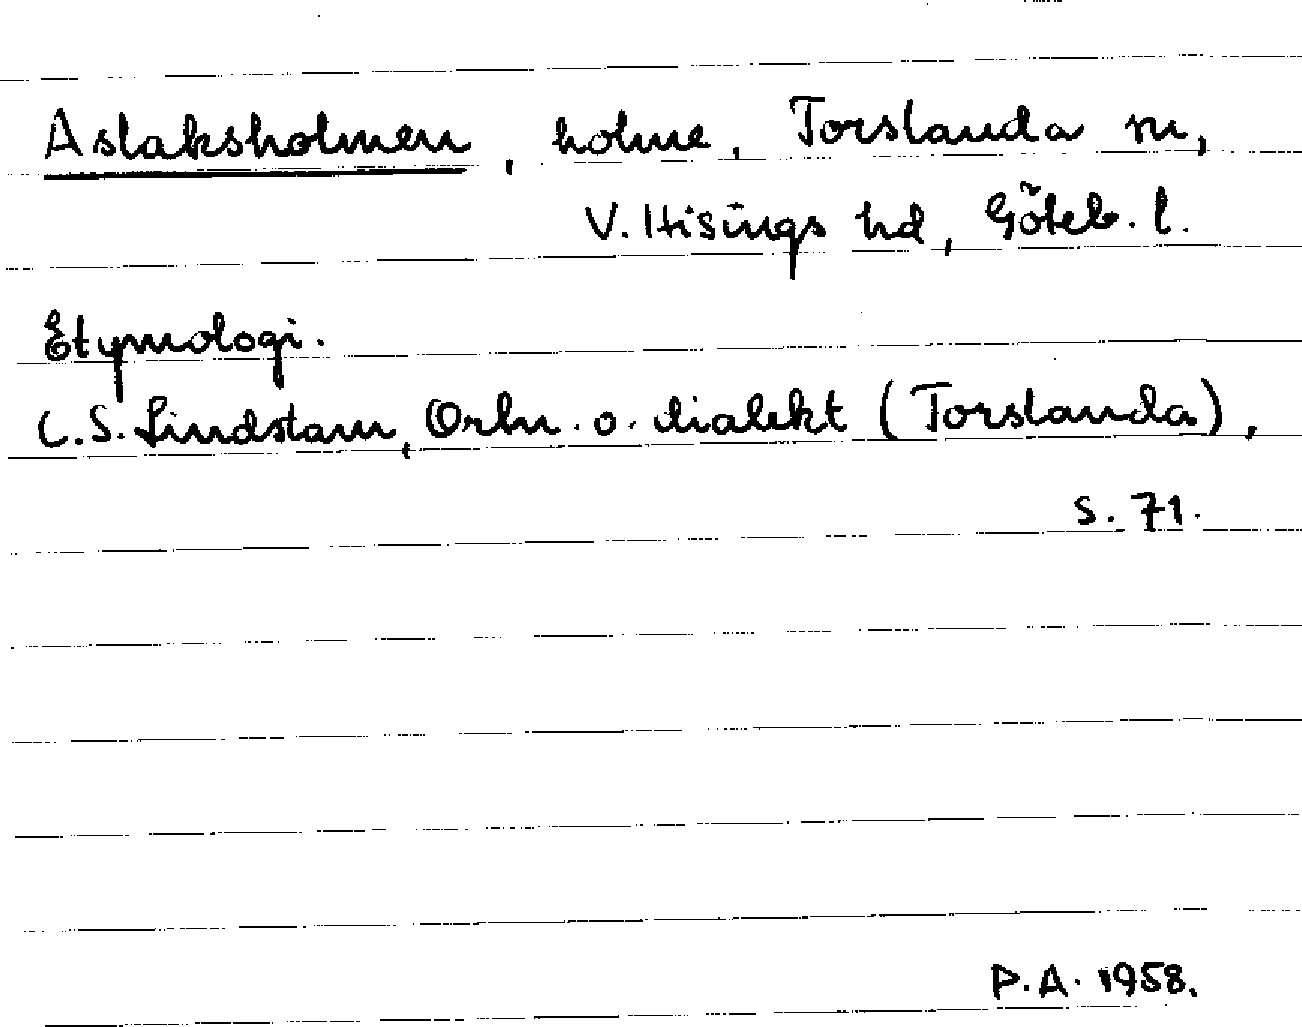 Aslaksholmen, holme, Torslanda sn,
V. Hisings hd, Göteb. l.
Etymologi.
C.S. Lindstam, Ortn. o. dialekt (Torslanda),
s. 71.
P.A. 1958.